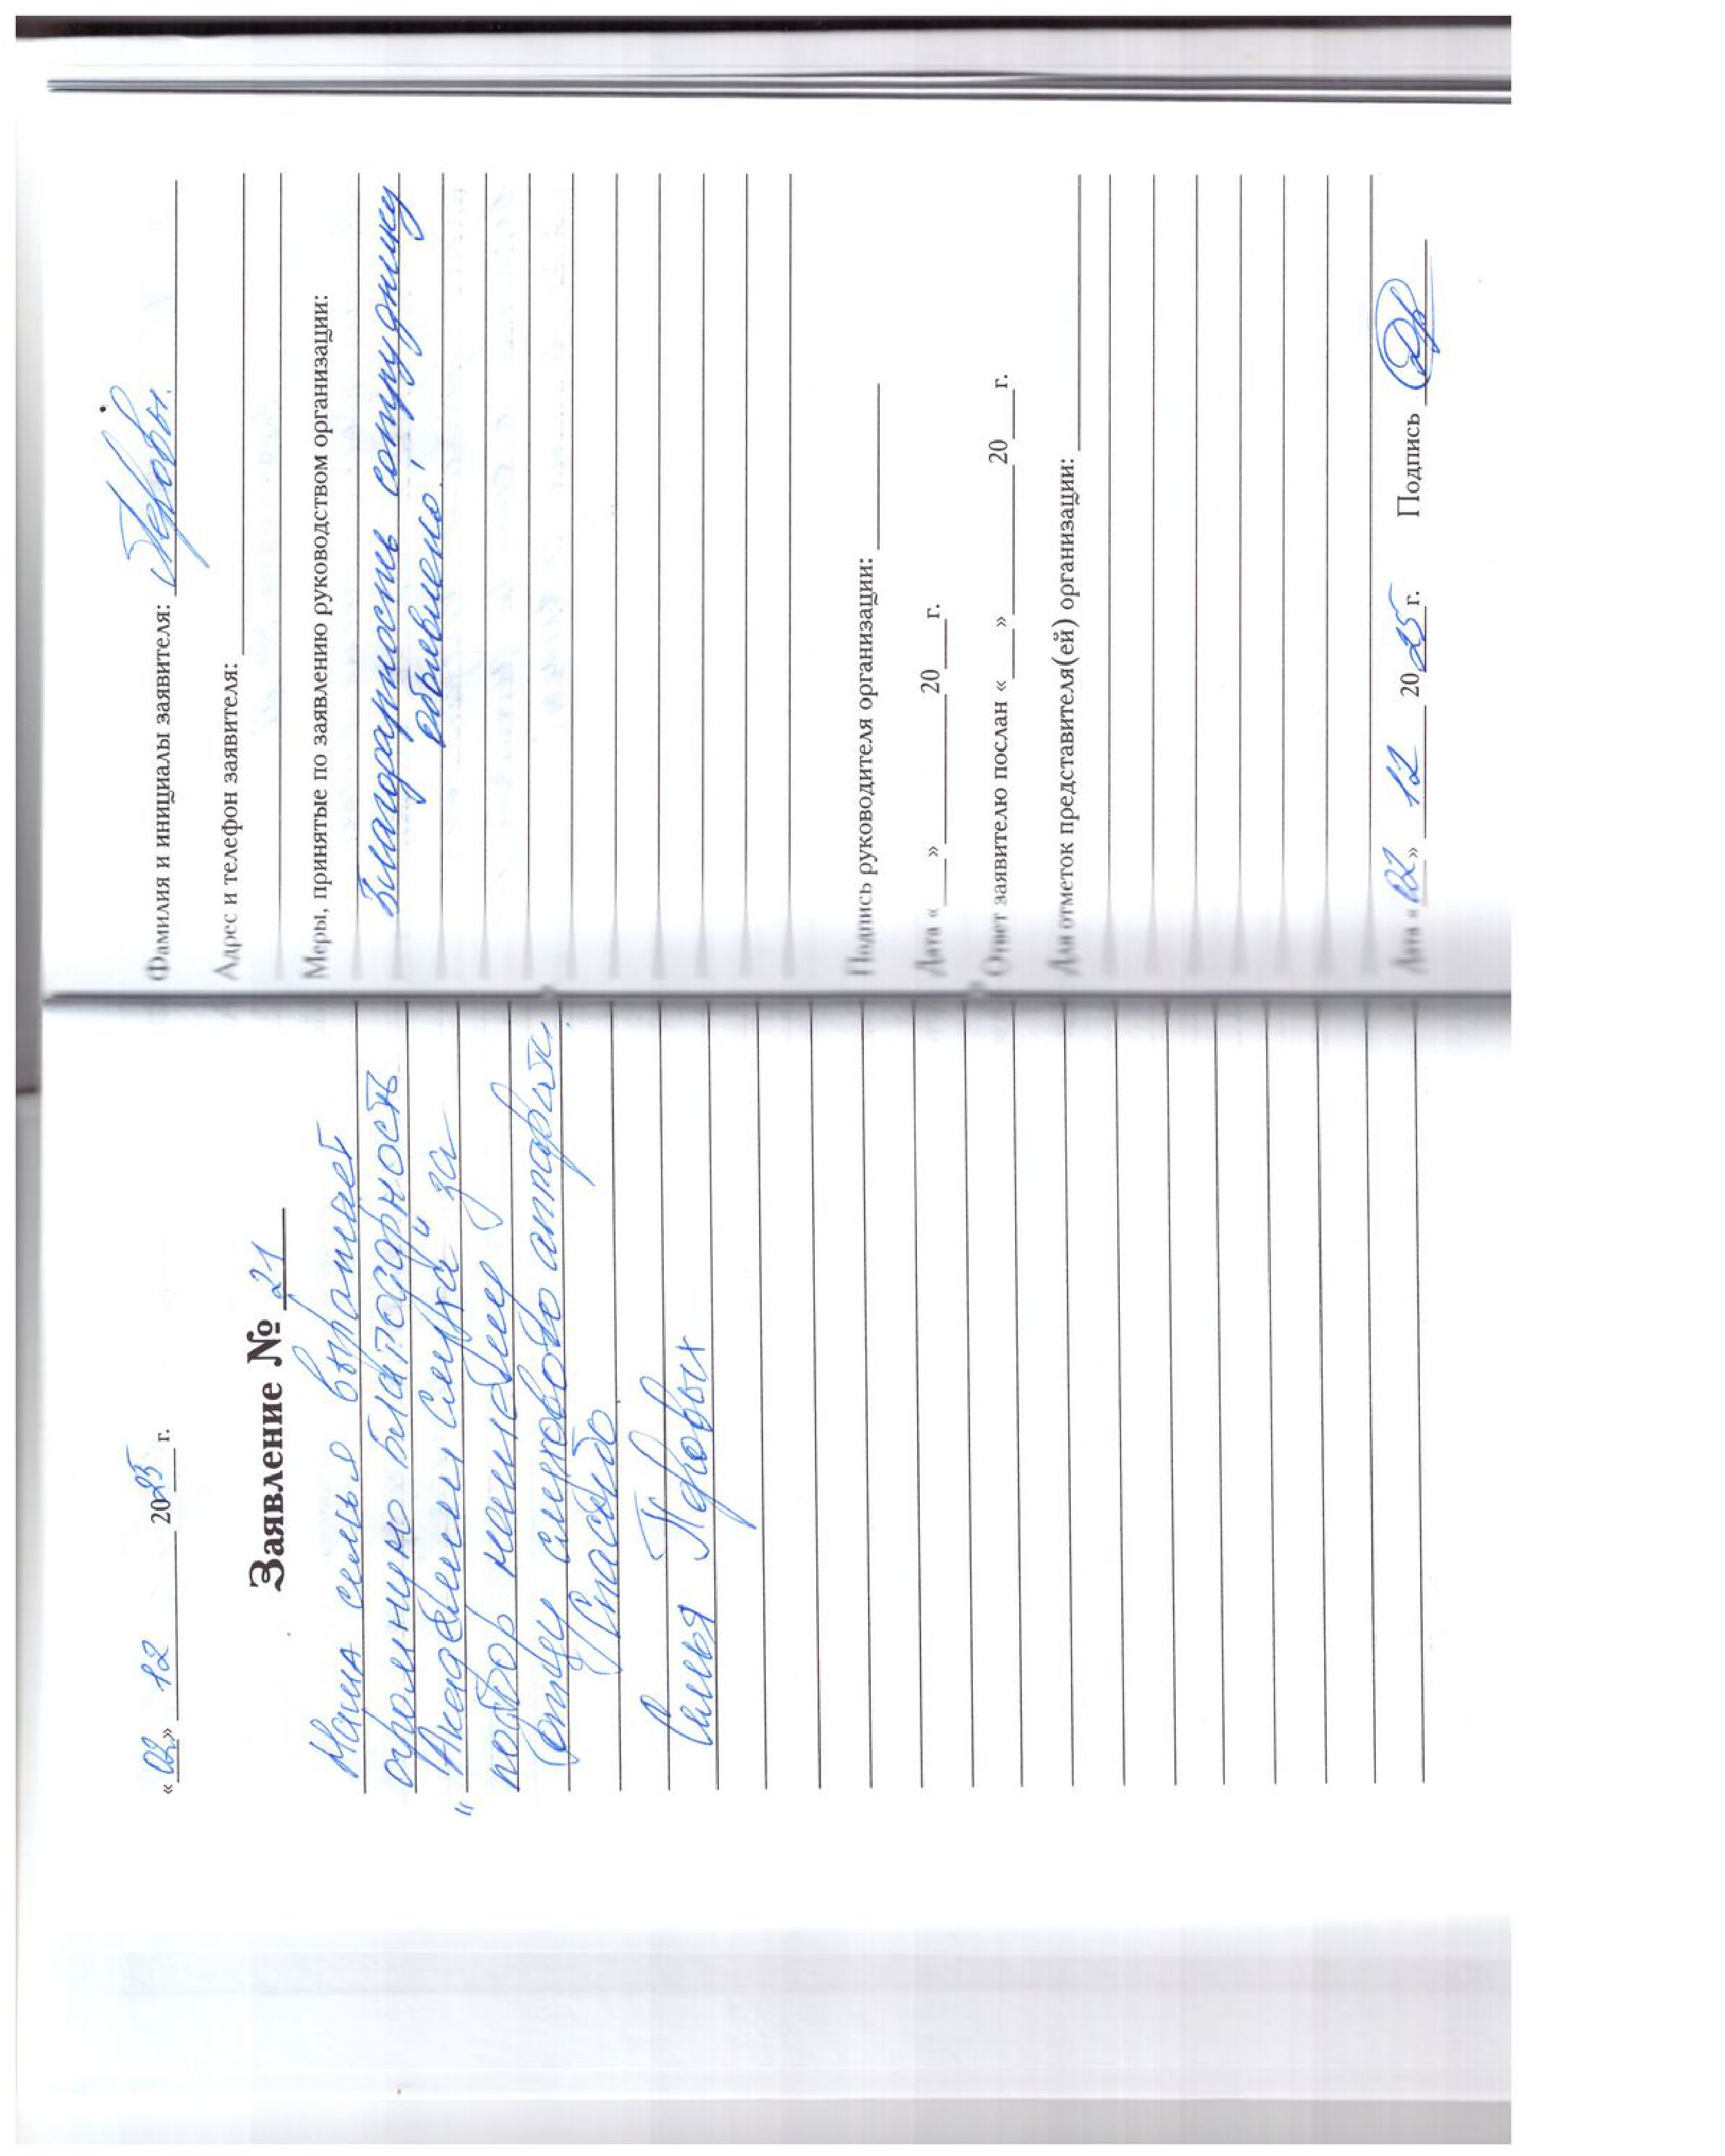 «02» 12 2025 г.
Заявление № 21
Наша семья выражает
огромную благодарность
"Академии слуха" за
подбор нашему
отцу слухового аппарата.
Спасибо
Семья Перовых
Фамилия и инициалы заявителя: Перовы.
Адрес и телефон заявителя:
Меры, принятые по заявлению руководством организации:
Благодарность сотруднику
объявлено.
Подпись руководителя организации:
Дата « » 20 г.
Ответ заявителю послан « » 20 г.
Для отметок представителя(ей) организации:
Дата «02» 12 2025 г. Подпись